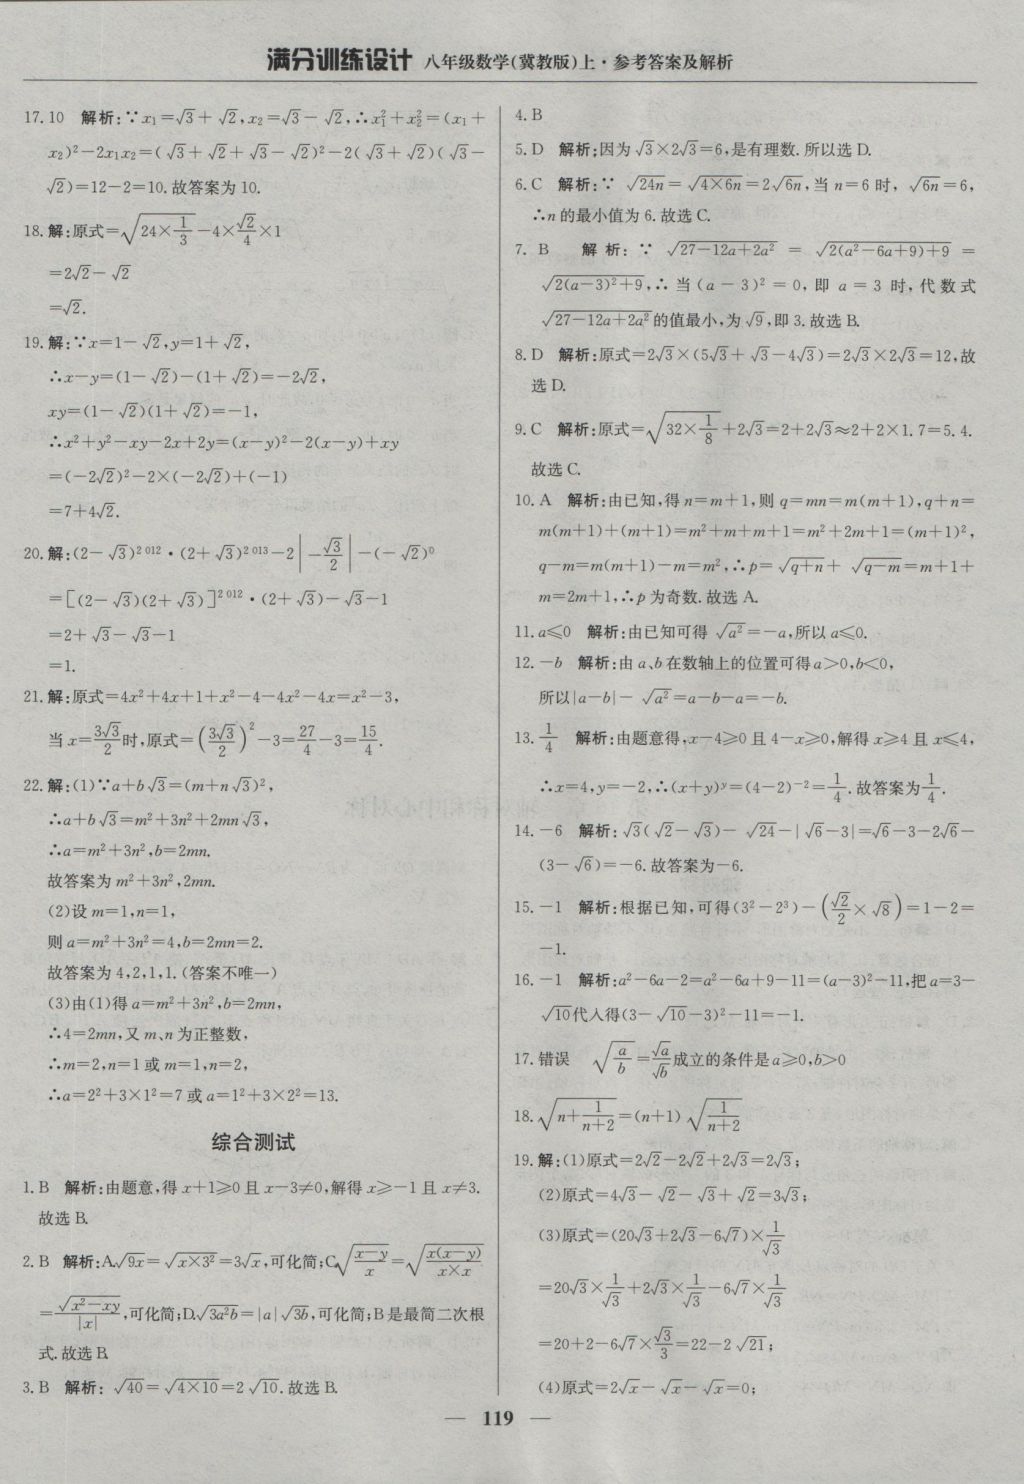 满分训练设计 八年级数学(冀教版)上·参考答案及解析
17. 10 解析:∵x₁=√3+√2,x₂=√3-√2,∴x₁²+x₂²=(x₁+
x₂)²-2x₁x₂=(√3+√2+√3-√2)²-2(√3+√2)(√3-
√2)=12-2=10.故答案为10.
18. 解:原式=√(24×1/3)-4×√2/4×1
=2√2-√2
=√2.
19. 解:∵x=1-√2,y=1+√2,
∴x-y=(1-√2)-(1+√2)=-2√2,
xy=(1-√2)(1+√2)=-1,
∴x²+y²-xy-2x+2y=(x-y)²-2(x-y)+xy
=(-2√2)²-2×(-2√2)+(-1)
=7+4√2.
20. 解:(2-√3)²⁰¹²·(2+√3)²⁰¹³-2|-√3/2|-(-√2)⁰
=[(2-√3)(2+√3)]²⁰¹²·(2+√3)-√3-1
=2+√3-√3-1
=1.
21. 解:原式=4x²+4x+1+x²-4-4x²-4x=x²-3,
当x=3√3/2时,原式=(3√3/2)²-3=27/4-3=15/4.
22. 解:(1)∵a+b√3=(m+n√3)²,
∴a+b√3=m²+3n²+2mn√3,
∴a=m²+3n²,b=2mn.
故答案为m²+3n²,2mn.
(2)设m=1,n=1,
则a=m²+3n²=4,b=2mn=2.
故答案为4,2,1,1.(答案不唯一)
(3)由(1)得a=m²+3n²,b=2mn,
∴4=2mn,又m、n为正整数,
∴m=2,n=1或m=1,n=2,
∴a=2²+3×1²=7或a=1²+3×2²=13.
综合测试
1. B 解析:由题意,得x+1≥0且x-3≠0,解得x≥-1且x≠3.
故选B.
2. B 解析:A.√(9x)=√(x×3²)=3√x,可化简;C.√((x-y)/x)=√(x(x-y)/(x×x))
=√(x²-xy)/|x|,可化简;D.√(3a²b)=|a|√(3b),可化简;B是最简二次根
式.故选B.
3. B 解析:√40=√(4×10)=2√10.故选B.
4. B
5. D 解析:因为√3×2√3=6,是有理数.所以选D.
6. C 解析:∵√(24n)=√(4×6n)=2√(6n),当n=6时,√(6n)=6,
∴n的最小值为6.故选C.
7. B 解析:∵√(27-12a+2a²)=√(2(a²-6a+9)+9)=
√(2(a-3)²+9),∴当(a-3)²=0,即a=3时,代数式
√(27-12a+2a²)的值最小,为√9,即3.故选B.
8. D 解析:原式=2√3×(5√3+√3-4√3)=2√3×2√3=12,故
选D.
9. C 解析:原式=√(32×1/8)+2√3=2+2√3≈2+2×1.7=5.4.
故选C.
10. A 解析:由已知,得n=m+1,则q=mn=m(m+1),q+n=
m(m+1)+(m+1)=m²+m+m+1=m²+2m+1=(m+1)²,
q-m=m(m+1)-m=m²,∴p=√(q+n)+√(q-m)=m+1+
m=2m+1,∴p为奇数.故选A.
11. a≤0 解析:由已知可得√(a²)=-a,所以a≤0.
12. -b 解析:由a、b在数轴上的位置可得a>0,b<0,
所以|a-b|-√(a²)=a-b-a=-b.
13. 1/4 解析:由题意得,x-4≥0且4-x≥0,解得x≥4且x≤4,
∴x=4,y=-2,∴(x+y)ʸ=(4-2)⁻²=1/4.故答案为1/4.
14. -6 解析:√3(√2-√3)-√24-|√6-3|=√6-3-2√6-
(3-√6)=-6.故答案为-6.
15. -1 解析:根据已知,可得(3²-2³)-(√2/2×√8)=1-2=
-1.
16. -1 解析:a²-6a-2=a²-6a+9-11=(a-3)²-11,把a=3-
√10代入得(3-√10-3)²-11=-1.
17. 错误 √(a/b)=√a/√b成立的条件是a≥0,b>0
18. √(n+1/(n+2))=(n+1)√(1/(n+2))
19. 解:(1)原式=2√2-2√2+2√3=2√3;
(2)原式=4√3-√2-√3+√2=3√3;
(3)原式=(20√3+2√3-6√7)×1/√3
=20√3×1/√3+2√3×1/√3-6√7×1/√3
=20+2-6√7×√3/3=22-2√21;
(4)原式=2√x-√x-√x=0;
— 119 —